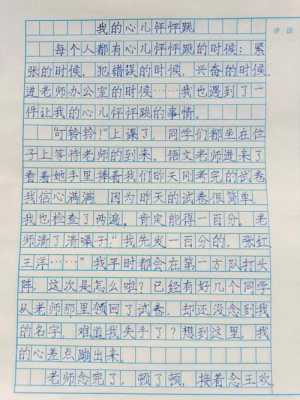 我的心儿怦怦跳
每个人都有心儿怦怦跳的时候：紧
张的时候，犯错误的时候，兴奋的时候，
进老师办公室的时候……我也遇到了一
件让我的心儿怦怦跳的事情。
“叮铃铃！”上课了，同学们都坐在位
子上等待老师的到来。语文老师进来了，
看着她手里捧着我们昨天刚考完的试卷，
我信心满满，因为昨天的试卷很简单，
我也检查了两遍，肯定能得一百分。老
师清了清嗓子：“我先发一百分的，张红，
王浮……”我平时都会在第一方队打头
阵，这次是怎么啦？已经有好几个同学
从老师那里领回了试卷，却还没念到我
的名字，难道我失手了？想到这里，我
的心差点蹦出来。
老师念完了，顿了顿，接着念王欢